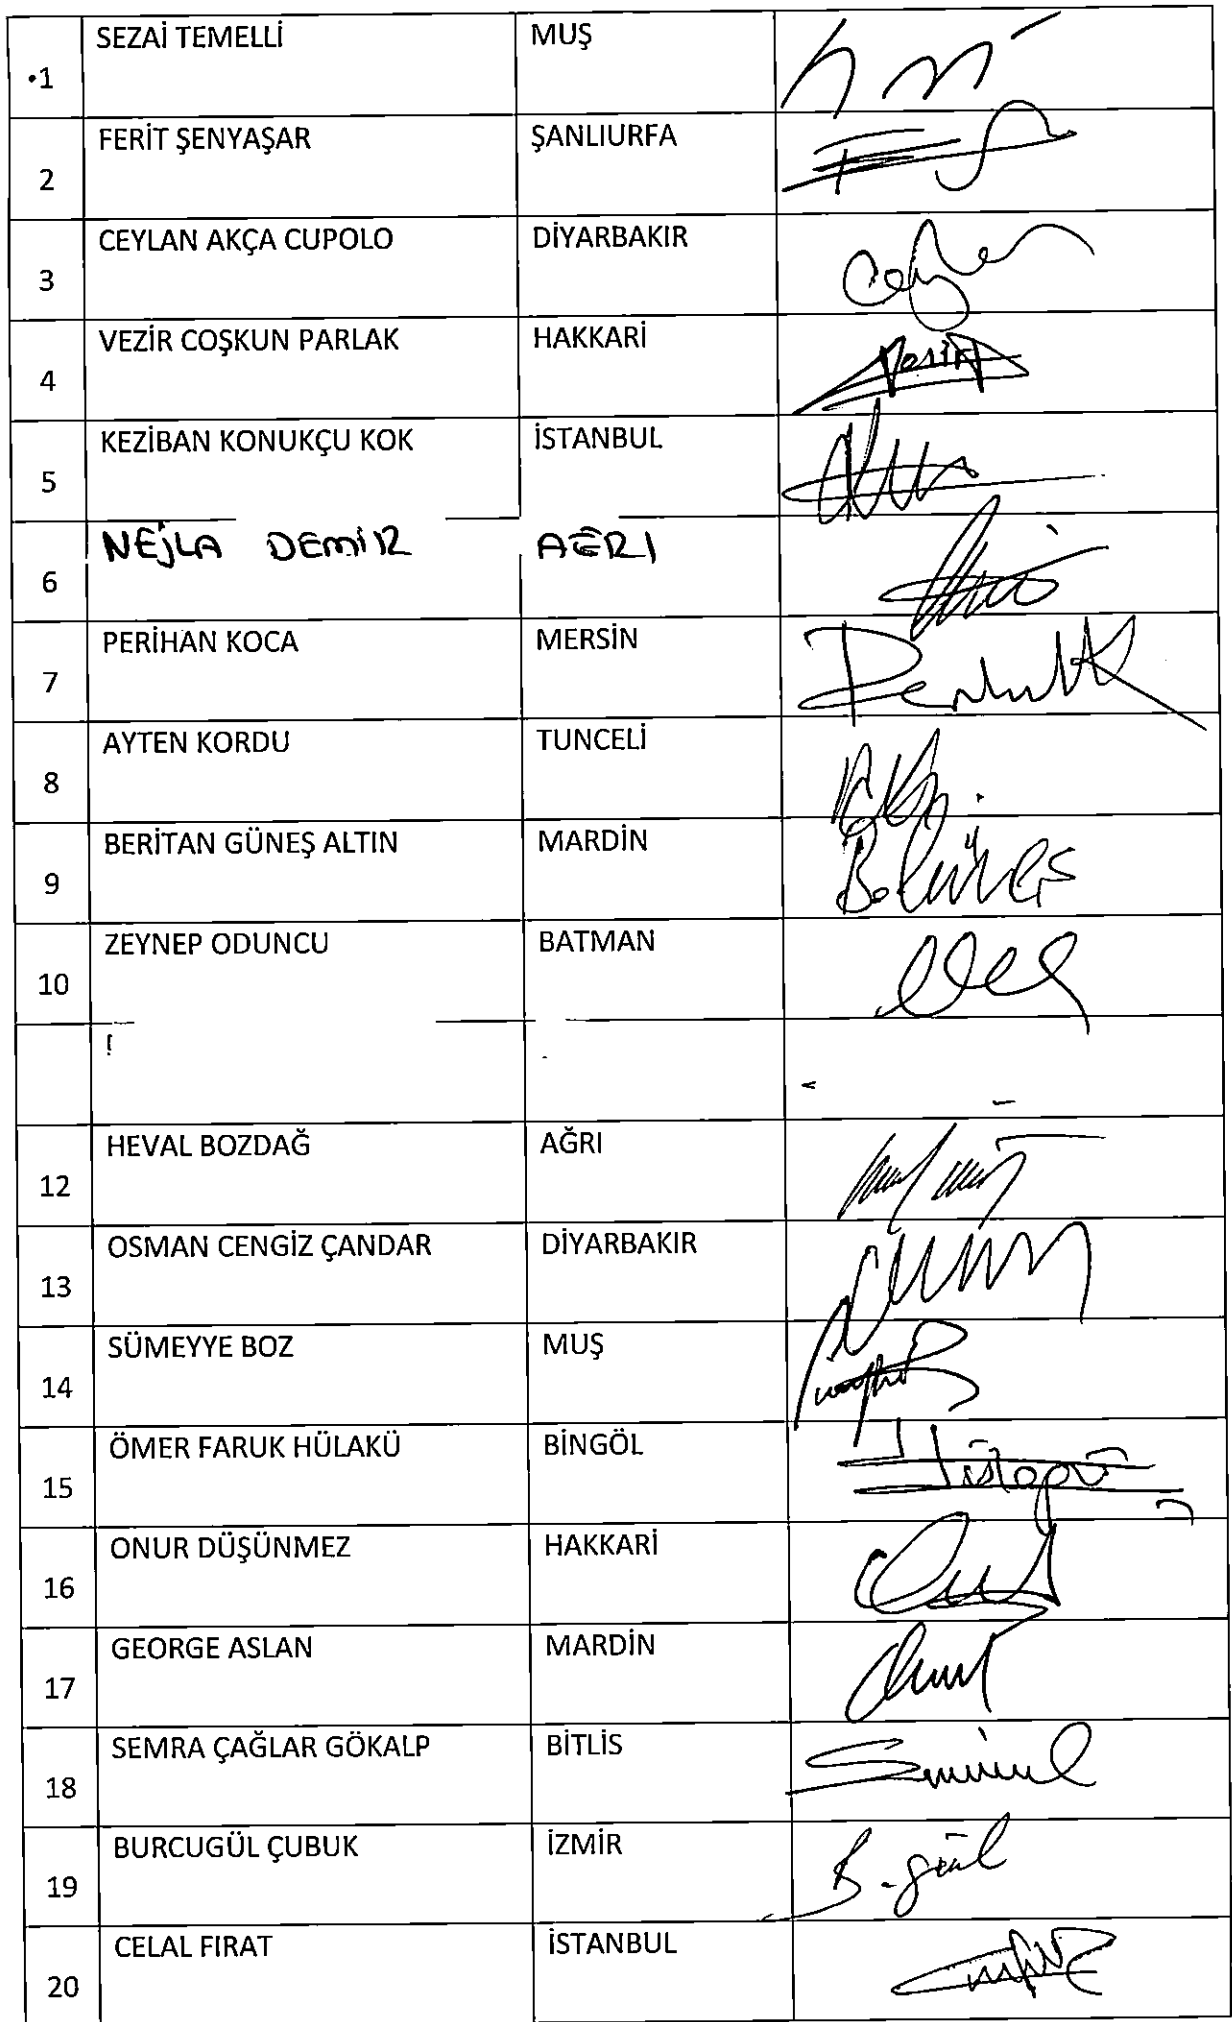 •1 SEZAİ TEMELLİ MUŞ
2 FERİT ŞENYAŞAR ŞANLIURFA
3 CEYLAN AKÇA CUPOLO DİYARBAKIR
4 VEZİR COŞKUN PARLAK HAKKARİ
5 KEZİBAN KONUKÇU KOK İSTANBUL
6 NEJLA DEMİR AĞRI
7 PERİHAN KOCA MERSİN
8 AYTEN KORDU TUNCELİ
9 BERİTAN GÜNEŞ ALTIN MARDİN
10 ZEYNEP ODUNCU BATMAN
12 HEVAL BOZDAĞ AĞRI
13 OSMAN CENGİZ ÇANDAR DİYARBAKIR
14 SÜMEYYE BOZ MUŞ
15 ÖMER FARUK HÜLAKÜ BİNGÖL
16 ONUR DÜŞÜNMEZ HAKKARİ
17 GEORGE ASLAN MARDİN
18 SEMRA ÇAĞLAR GÖKALP BİTLİS
19 BURCUGÜL ÇUBUK İZMİR B.gül
20 CELAL FIRAT İSTANBUL